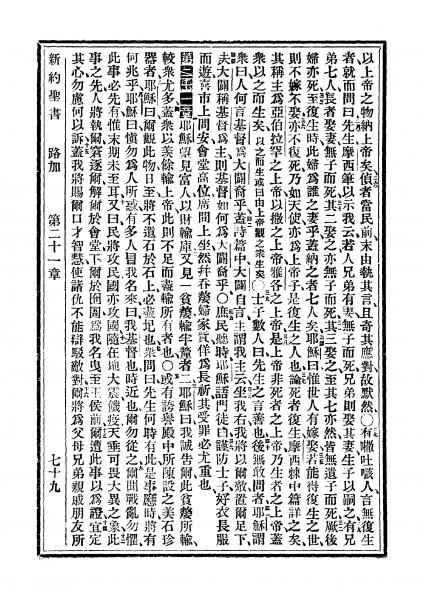 以上帝之物納上帝矣、偵者當民前、末由執其言、且奇其應對、故默然、○有吐人、言無復生
者、就而問曰、先生、摩西筆以示我云、若人兄弟有妻無子而死、兄弟則娶其妻、生子以嗣之、有兄
弟七人、長者娶妻無子而死、其二娶之、亦無子而死、其三娶之、至其七亦然、皆無遺子而死、厥後
婦亦死、至復生時、此婦爲誰之妻乎、蓋納之者七人矣、耶穌曰、惟世人有嫁娶、若能得復生之世、
則不嫁不娶、亦不復死、乃如天使、亦爲上帝子、是復生之人也、論死者復生、摩西棘中篇詳之矣、
其稱主爲亞伯拉罕之上帝、以撒之上帝、雅各之上帝、是上帝非死者之上帝、乃生者之上帝、蓋
衆以之而生矣、以之而生或曰由上帝觀之衆生矣○士子數人曰、先生之言善也、後無敢問者、耶穌謂
衆曰、人何言基督爲大闢裔乎、蓋詩篇中大闢自言、主謂我主云、坐我右、我將以爾敵置爾足下、
夫大闢稱基督爲主、則基督如何爲大闢裔乎、○庶民聽時、耶穌語門徒曰、謹防士子、好衣長服
而遊、喜市上問安、會堂高位、席間上坐、然幷呑嫠婦家貲、佯爲長祈、其受罪必尤重也、
第二十一章 耶穌望、見富人以財輸庫、又見一貧嫠、輸半釐者二、耶穌曰、我誠告爾、此貧嫠所輸、
較衆尤多、蓋衆以羨餘輸上帝、此則不足、而盡輸所有者也、○或有誇譽殿中所陳設之美石珍
器者、耶穌曰、爾觀此物、日至、將不遺石於石上、必盡圮也、衆問曰、先生、何時有此、是事應時、將有
何兆乎、耶穌曰、愼勿爲人所惑、有多人冒我名來、曰、我基督也、時近也、爾勿從之、爾聞戰亂、勿懼、
此事必先有、惟末期未至耳、又曰、民將攻民、國亦攻國、隨在地大震、饑疫、天垂可畏大異之象、此
事之先、人將執爾、窘逐爾、解爾於會堂、下爾於囹圄、爲我名、曳至王侯前、爾遭此事、以爲證、宜定
其心、勿慮何以訴、蓋我將賜爾口才智慧、使諸仇不能辯駁敵對、爾將爲父母兄弟親戚朋友所
新約聖書 路加 第二十一章 七十九